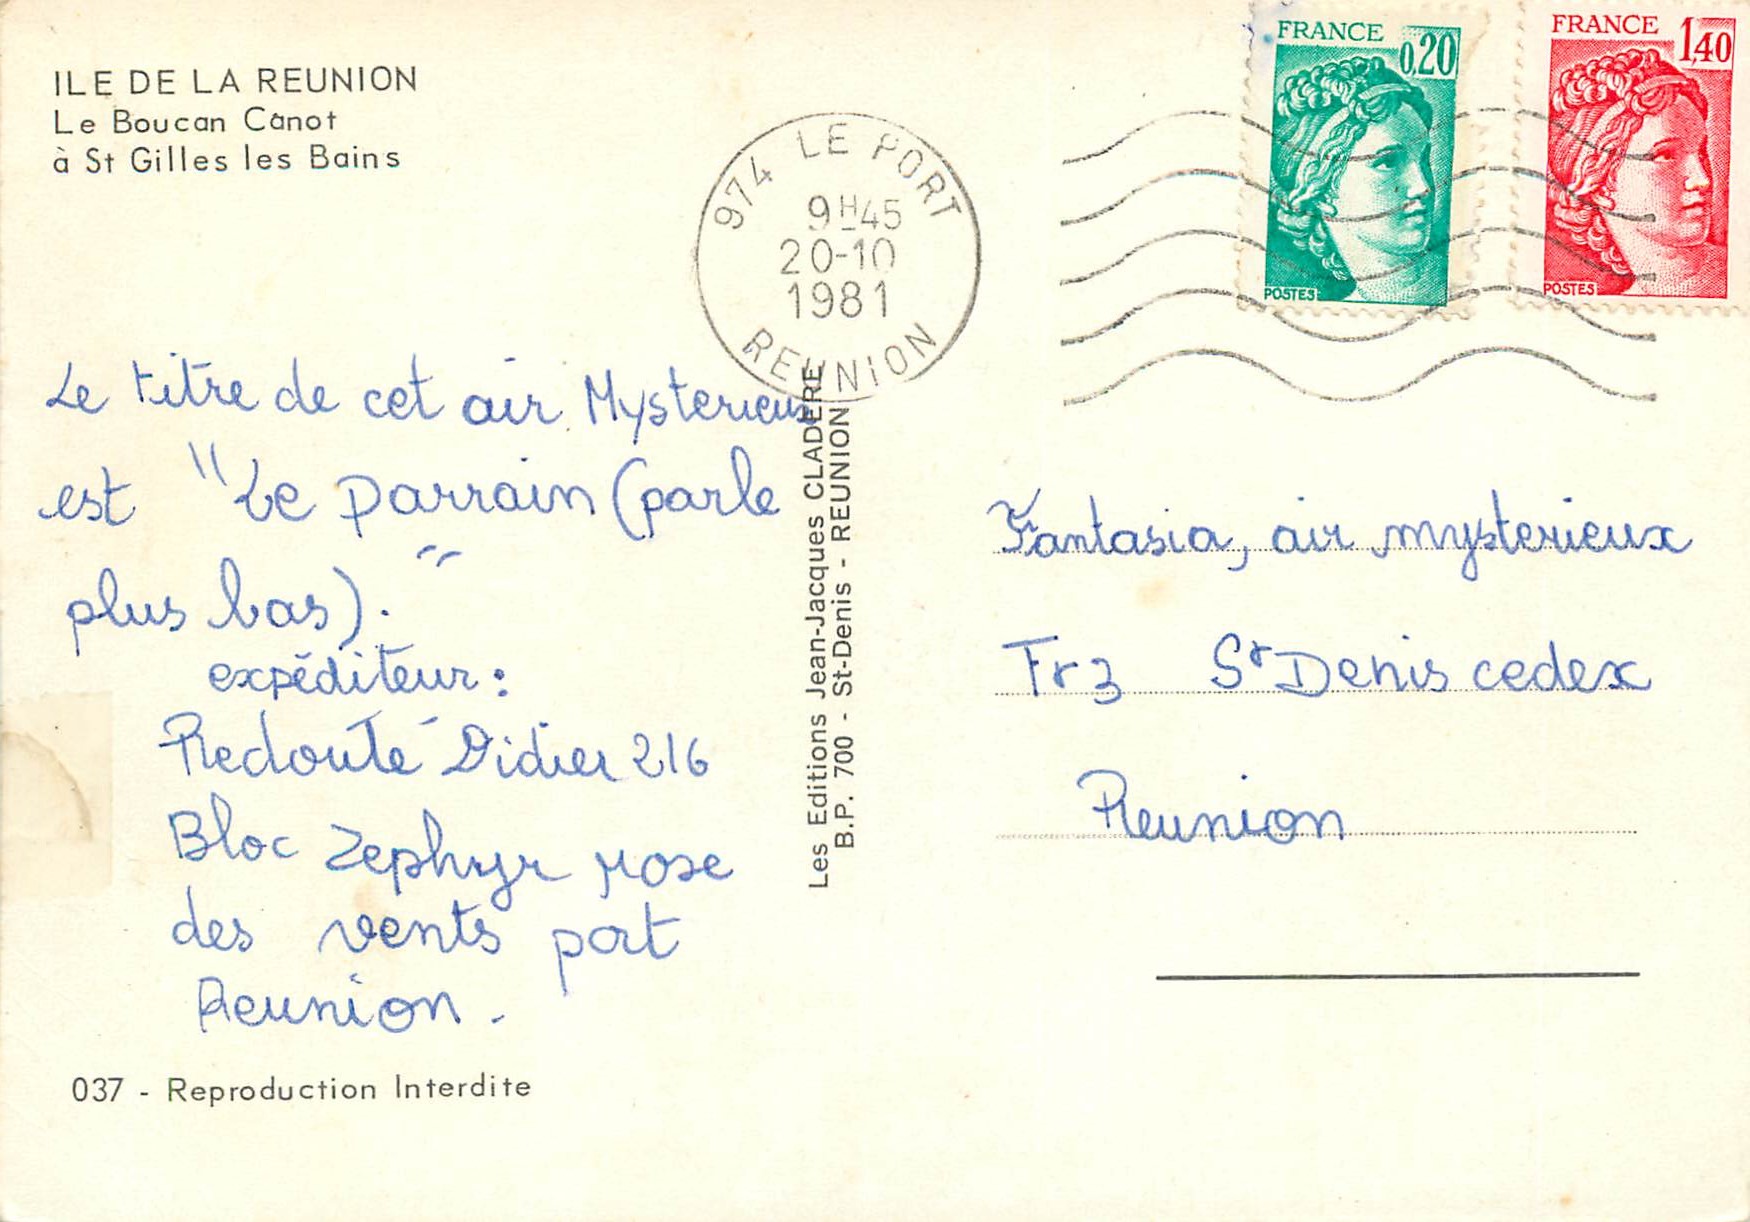 ILE DE LA REUNION
Le Boucan Canot
à St Gilles les Bains
974 LE PORT
9H45
20-10
1981
REUNION
FRANCE
0,20
POSTES
FRANCE
1,40
POSTES
Le titre de cet air Mysterieux
est "Le parrain (parle
plus bas)."
expéditeur:
Redouté Didier 216
Bloc Zephyr rose
des vents port
Reunion.
037 - Reproduction Interdite
Les Editions Jean-Jacques CLADERE
B.P. 700 - St-Denis - REUNION
Fantasia, air mysterieux
Fr3 St Denis cedex
Reunion